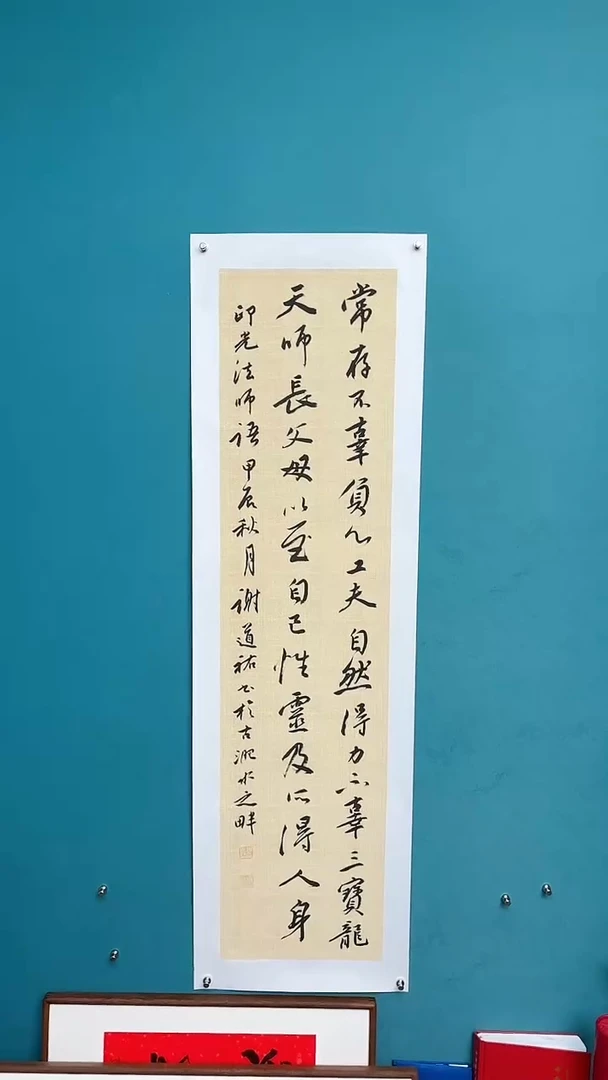 常存不辜負心工夫自然得力不辜三寶龍
天師長父母以至自己性靈及所得人身
印光法師語甲辰秋月謝道祐書於古淝水之畔